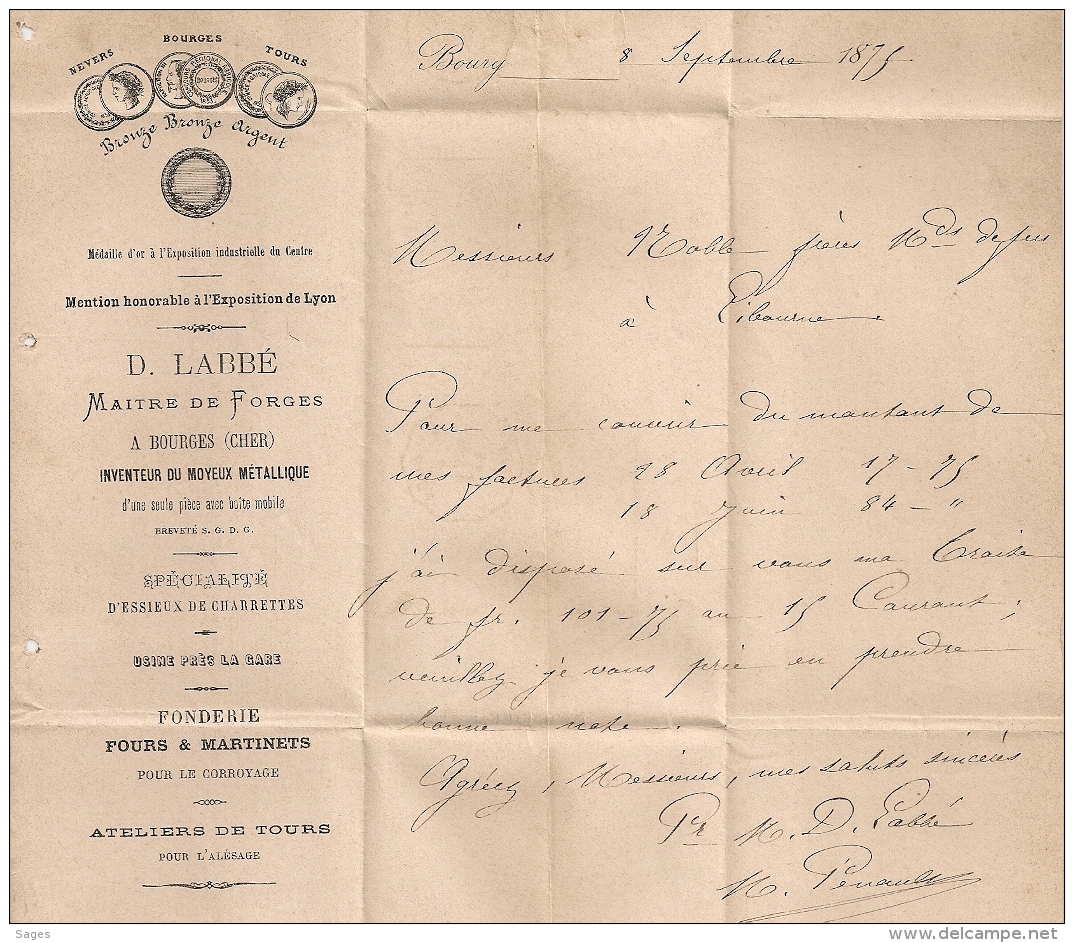 NEVERS BOURGES TOURS
Bronze Bronze Argent
Médaille d'or à l'Exposition industrielle du Centre
Mention honorable à l'Exposition de Lyon
D. LABBÉ
MAITRE DE FORGES
A BOURGES (CHER)
INVENTEUR DU MOYEUX MÉTALLIQUE
d'une seule pièce avec boîte mobile
BREVETÉ S. G. D. G.
SPÉCIALITÉ
D'ESSIEUX DE CHARRETTES
USINE PRÈS LA GARE
FONDERIE
FOURS & MARTINETS
POUR LE CORROYAGE
ATELIERS DE TOURS
POUR L'ALÉSAGE
Bourg 8 Septembre 1875
Messieurs frères Mds de fers
à Libourne
Pour me couvrir du montant de
mes factures 28 Avril 17-75
18 Juin 84 - "
j'ai disposé sur vous ma Traite
de fr. 101-75 au 15 Courant;
veuillez je vous prie en prendre
bonne note.
Agréez, Messieurs, mes saluts sincères
Pr M. D. Labbé
M. Pénault
Sages
www.delcampe.net